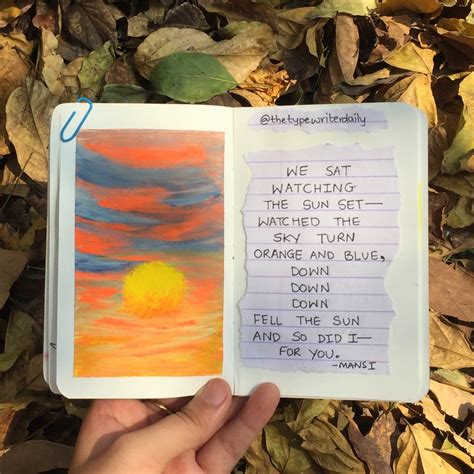 @thetypewriterdaily
WE SAT
WATCHING
THE SUN SET—
WATCHED THE
SKY TURN
ORANGE AND BLUE,
DOWN
DOWN
DOWN
FELL THE SUN
AND SO DID I—
FOR YOU.
-MANSI